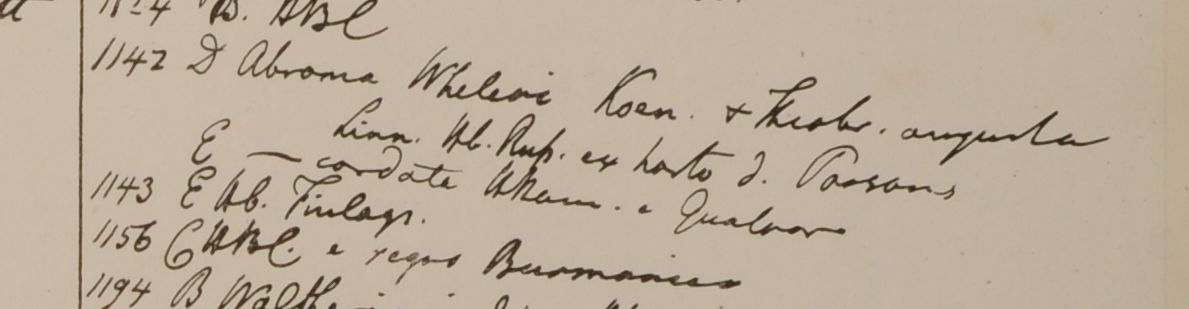 B. HBC
1142 D Abroma Wheleri Koen. & Theobr. augusta
Linn. Hb. Rup. ex horto d. Parsons
E — cordata HHam. e Gualpara
1143 E Hb. Finlays.
1156 C HBC. e regno Burmanico
1194 B